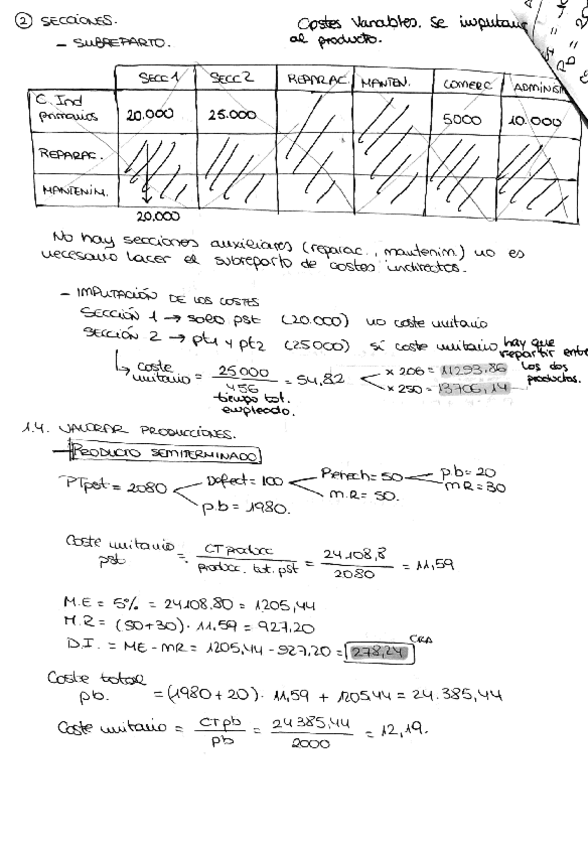 ② SECCIONES.
Costes Variables. Se imputan
al producto.
- SUBREPARTO.
SECC 1 SECC 2 REPARAC. MANTEN. COMERC ADMINIST
C. Ind
primarios 20.000 25.000 5000 10.000
REPARAC.
MANTENIM.
20.000
No hay secciones auxiliares (reparac., mantenim.) no es
necesario hacer el subreparto de costes indirectos.
- IMPUTACIÓN DE LOS COSTES
SECCIÓN 1 → solo pst (20.000) no coste unitario
SECCIÓN 2 → pt1 y pt2 (25000) sí coste unitario, hay que
repartir entre
los dos
productos.
↳ coste
unitario = 25000 / 456 = 54,82 × 206 = 11293,86
× 250 = 13706,14
tiempo tot.
empleado.
1.4. VALORAR PRODUCCIONES.
- PRODUCTO SEMITERMINADO
PTpst = 2080 Defect = 100 Rerech = 50 p.b = 20
m.R = 30
m.R = 50.
p.b = 1980.
Coste unitario
pst = CT producc / producc. tot. pst = 24.108,8 / 2080 = 11,59
M.E = 5% = 24108.80 = 1205,44
M.R = (50+30) · 11.59 = 927,20
D.I. = ME - MR = 1205,44 - 927,20 = 278,24
Coste total
pb. = (1980 + 20) · 11,59 + 1205.44 = 24.385,44
Coste unitario = CT pb / pb = 24385,44 / 2000 = 12,19.